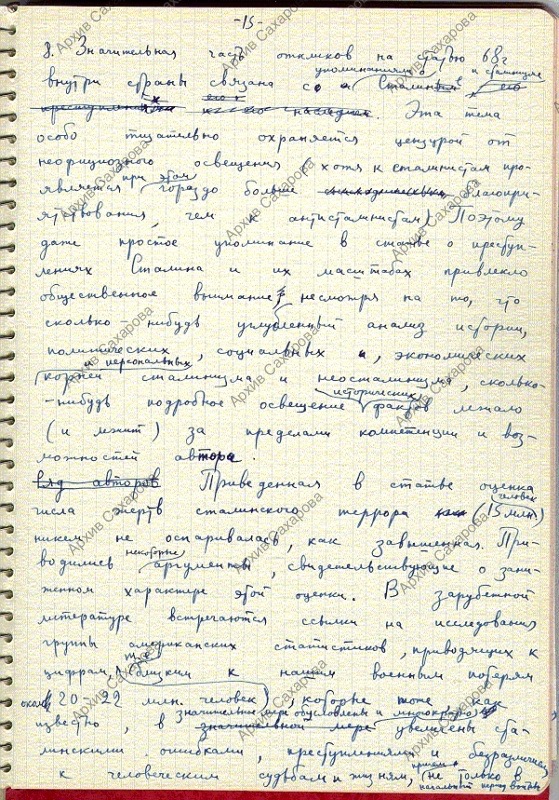 -15-
8. Значительная часть откликов на статью 68г
упоминаниями о и сталинизме
внутри страны связана с Сталин его
преступлениях его наследия. Эта тема
особо тщательно охраняется цензурой от
неофициозного освещения хотя к сталинистам про-
при этом
является гораздо больше благопри-
ятствования, чем к антисталинистам. Поэтому
даже простое упоминание в статье о преступ-
лениях Сталина и их масштабах привлекло
общественное внимание, несмотря на то, что
сколько-нибудь углубленный анализ истории,
политических, социальных, экономических
и персональных
корней сталинизма и неосталинизма, сколько-
исторических
-нибудь подробное освещение фактов лежало
(и лежит) за пределами компетенции и воз-
можностей автора.
авторов Приведенная в статье оценка
человек
числа жертв сталинского террора (15 млн)
никем не оспаривалась, как завышенная. При-
некоторые
водились аргументы, свидетельствующие о зани-
женном характере этой оценки. В зарубежной
литературе встречаются ссылки на исследования
группы американских статистиков, приводящих к
тоже
цифрам, близким к нашим военным потерям
около
20-22 млн. человек), которые тоже как
значительной мере обусловлены и многократно
известно, в значительной мере увеличены ста-
линскими ошибками, преступлениями и безразличием
к человеческим судьбам и жизням, (не только в
начальный период войны
Архив Сахарова